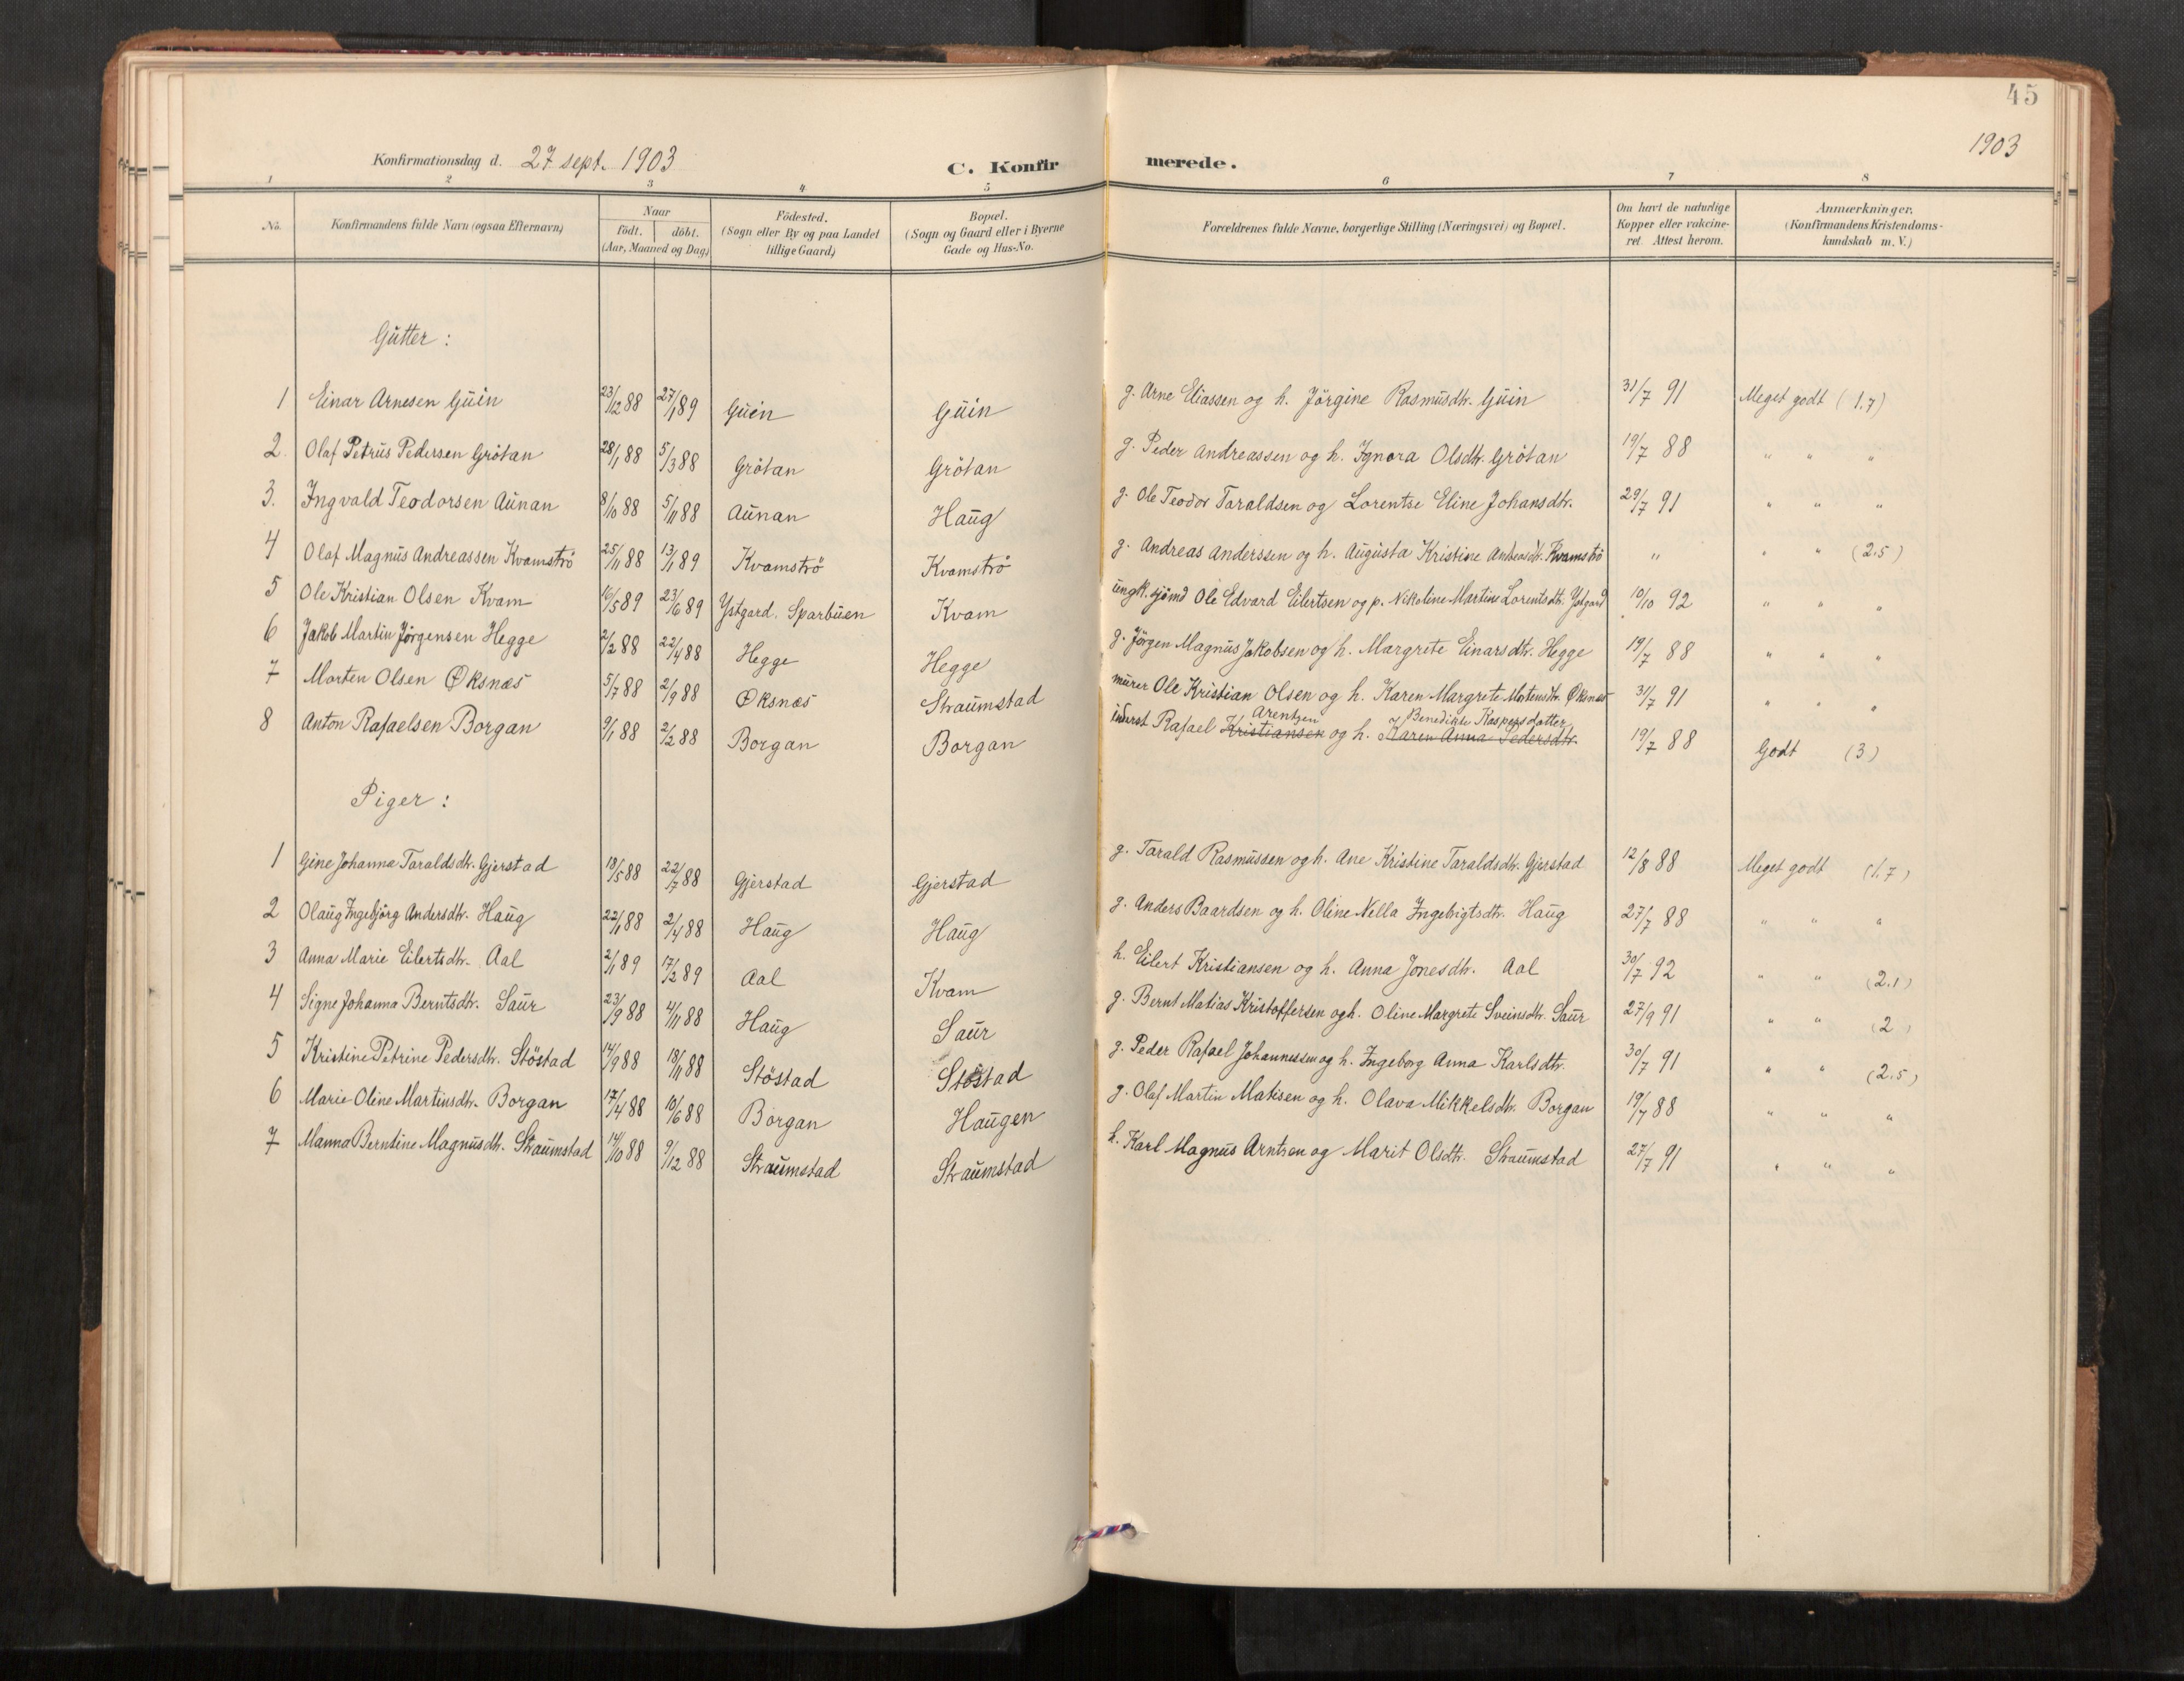 45
1903
Konfirmationsdag d. 27 sept. 1903 C. Konfirmerede.
1 2 3 4 5 6 7 8
No. Konfirmandens fulde Navn (ogsaa Efternavn) Naar født. døbt. (Aar, Maaned og Dag) Fødested. (Sogn eller By og paa Landet tillige Gaard) Bopæl. (Sogn og Gaard eller i Byerne Gade og Hus-No. Forældrenes fulde Navne, borgerlige Stilling (Næringsvei) og Bopæl. Om havt de naturlige Kopper eller vakcineret. Attest herom. Anmærkninger. (Konfirmandens Kristendomskundskab m. V.)
Gutter:
1 Einar Arnesen Guin 23/12 88 27/1 89 Guin Guin g. Arne Eliassen og h. Jörgine Rasmusdtr. Guin 31/7 91 Meget godt (1.7)
2. Olaf Petrus Pedersen Grötan 28/1 88 5/3 88 Grötan Grötan g. Peder Andreassen og h. Ignora Olsdtr. Grötan 19/7 88 " " "
3. Ingvald Teodorsen Aunan 8/10 88 5/11 88 Aunan Haug g. Ole Teodor Taraldsen og Lorentse Eline Johansdtr. 29/7 91 " " "
4 Olaf Magnus Andreassen Kvamströ 25/11 88 13/1 89 Kvamströ Kvamströ g. Andreas Anderssen og h. Augusta Kristine Andreasdtr. Kvamströ " " " (2.5)
5 Ole Kristian Olsen Kvam 16/5 89 23/6 89 Ystgard. Sparbuen Kvam ungk. sjömd Ole Edvard Eilertsen og p. Nikoline Martine Lorentsdtr. Ystgard 10/10 92 " " "
6 Jakob Martin Jörgensen Hegge 2/2 88 22/4 88 Hegge Hegge g. Jörgen Magnus Jakobsen og h. Margrete Einarsdtr. Hegge 19/7 88 " " "
7 Morten Olsen Øksnæs 5/7 88 2/9 88 Øksnæs Straumstad murer Ole Kristian Olsen og h. Karen Margrete Mortensdtr. Øksnæs 31/7 91 " " "
Arentzen Benedikte Kaspersdatter
8 Anton Rafaelsen Borgan 9/1 88 2/2 88 Borgan Borgan inderst Rafael Kristiansen og h. Karen Anna Pedersdtr. 19/7 88 Godt (3)
Piger:
1 Gine Johanna Taraldsdtr. Gjerstad 19/5 88 22/7 88 Gjerstad Gjerstad g. Tarald Rasmussen og h. Ane Kristine Taraldsdtr. Gjerstad 12/8 88 Meget godt (1.7)
2 Olaug Ingebjörg Andersdtr. Haug 22/1 88 2/4 88 Haug Haug g. Anders Baardsen og h. Oline Nella Ingebrigtsdtr. Haug 27/7 88 " " "
3 Anna Marie Eilertsdtr. Aal 2/1 89 17/2 89 Aal Kvam h. Eilert Kristiansen og h. Anna Jonesdtr. Aal 30/7 92 " " (2.1)
4 Signe Johanna Berntsdtr. Saur 23/9 88 4/11 88 Haug Saur g. Bernt Matias Kristoffersen og h. Oline Margrete Sveinsdtr. Saur 27/9 91 " " (2)
5 Kristine Petrine Pedersdtr. Stöstad 14/9 88 18/11 88 Stöstad Stöstad g. Peder Rafael Johannessen og h. Ingeborg Anna Karlsdtr. 30/7 91 " " (2.5)
6 Marie Oline Martinsdtr. Borgan 17/4 88 10/6 88 Borgan Haugen g. Olaf Martin Matisen og h. Olava Mikkelsdtr. Borgan 19/7 88 " " "
7 Manna Berntine Magnusdtr. Straumstad 14/10 88 9/12 88 Straumstad Straumstad h. Karl Magnus Arntzen og Marit Olsdtr. Straumstad 27/7 91 " " "